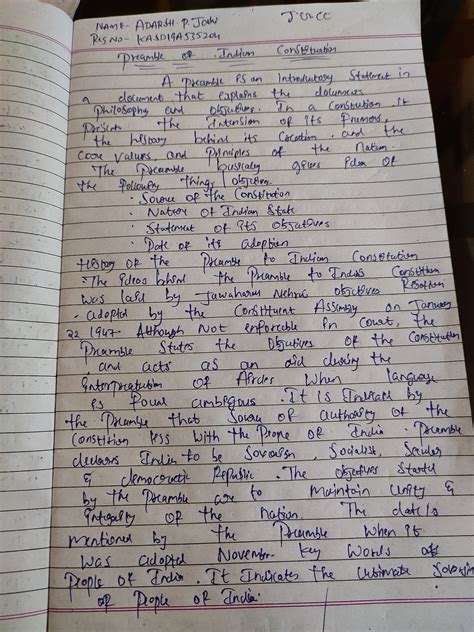 NAME- ADARSH P. Joshi
Reg No- KASD19A535204
Preamble of Indian Constitution
A Preamble is an Introductory Statement in
a document that explains the documents
Philosophy and objectives. In a Constitution, it
Presents the Intension of its Framers,
the history behind its Creation, and the
Core values, and Principles of the Nation.
The Preamble basically gives idea of
the following things objectives
· Source of the Constitution
· Nature of Indian State
· Statement of its objectives
· Date of its adoption
History of the Preamble to Indian Constitution
· The ideas behind the Preamble to India's Constitution
was laid by Jawaharlal Nehru's objectives Resolution
· adopted by the Constituent Assembly on January
22 1947. Although Not enforceable in Court, the
Preamble States the Objectives of the Constitution
and acts as an aid during the
Interpretation of Articles When language
is found ambiguous. It is Indicated by
the Preamble that Source of authority of the
Constitution lies with the People of India. Preamble
declares India to be Sovereign, Socialist, Secular
& democratic Republic. The objectives Stated
by the Preamble are to Maintain Unity &
Integrity of the Nation. The date is
mentioned by the Preamble When it
was adopted November key words of
People of India. It Indicates the ultimate
of People of India.